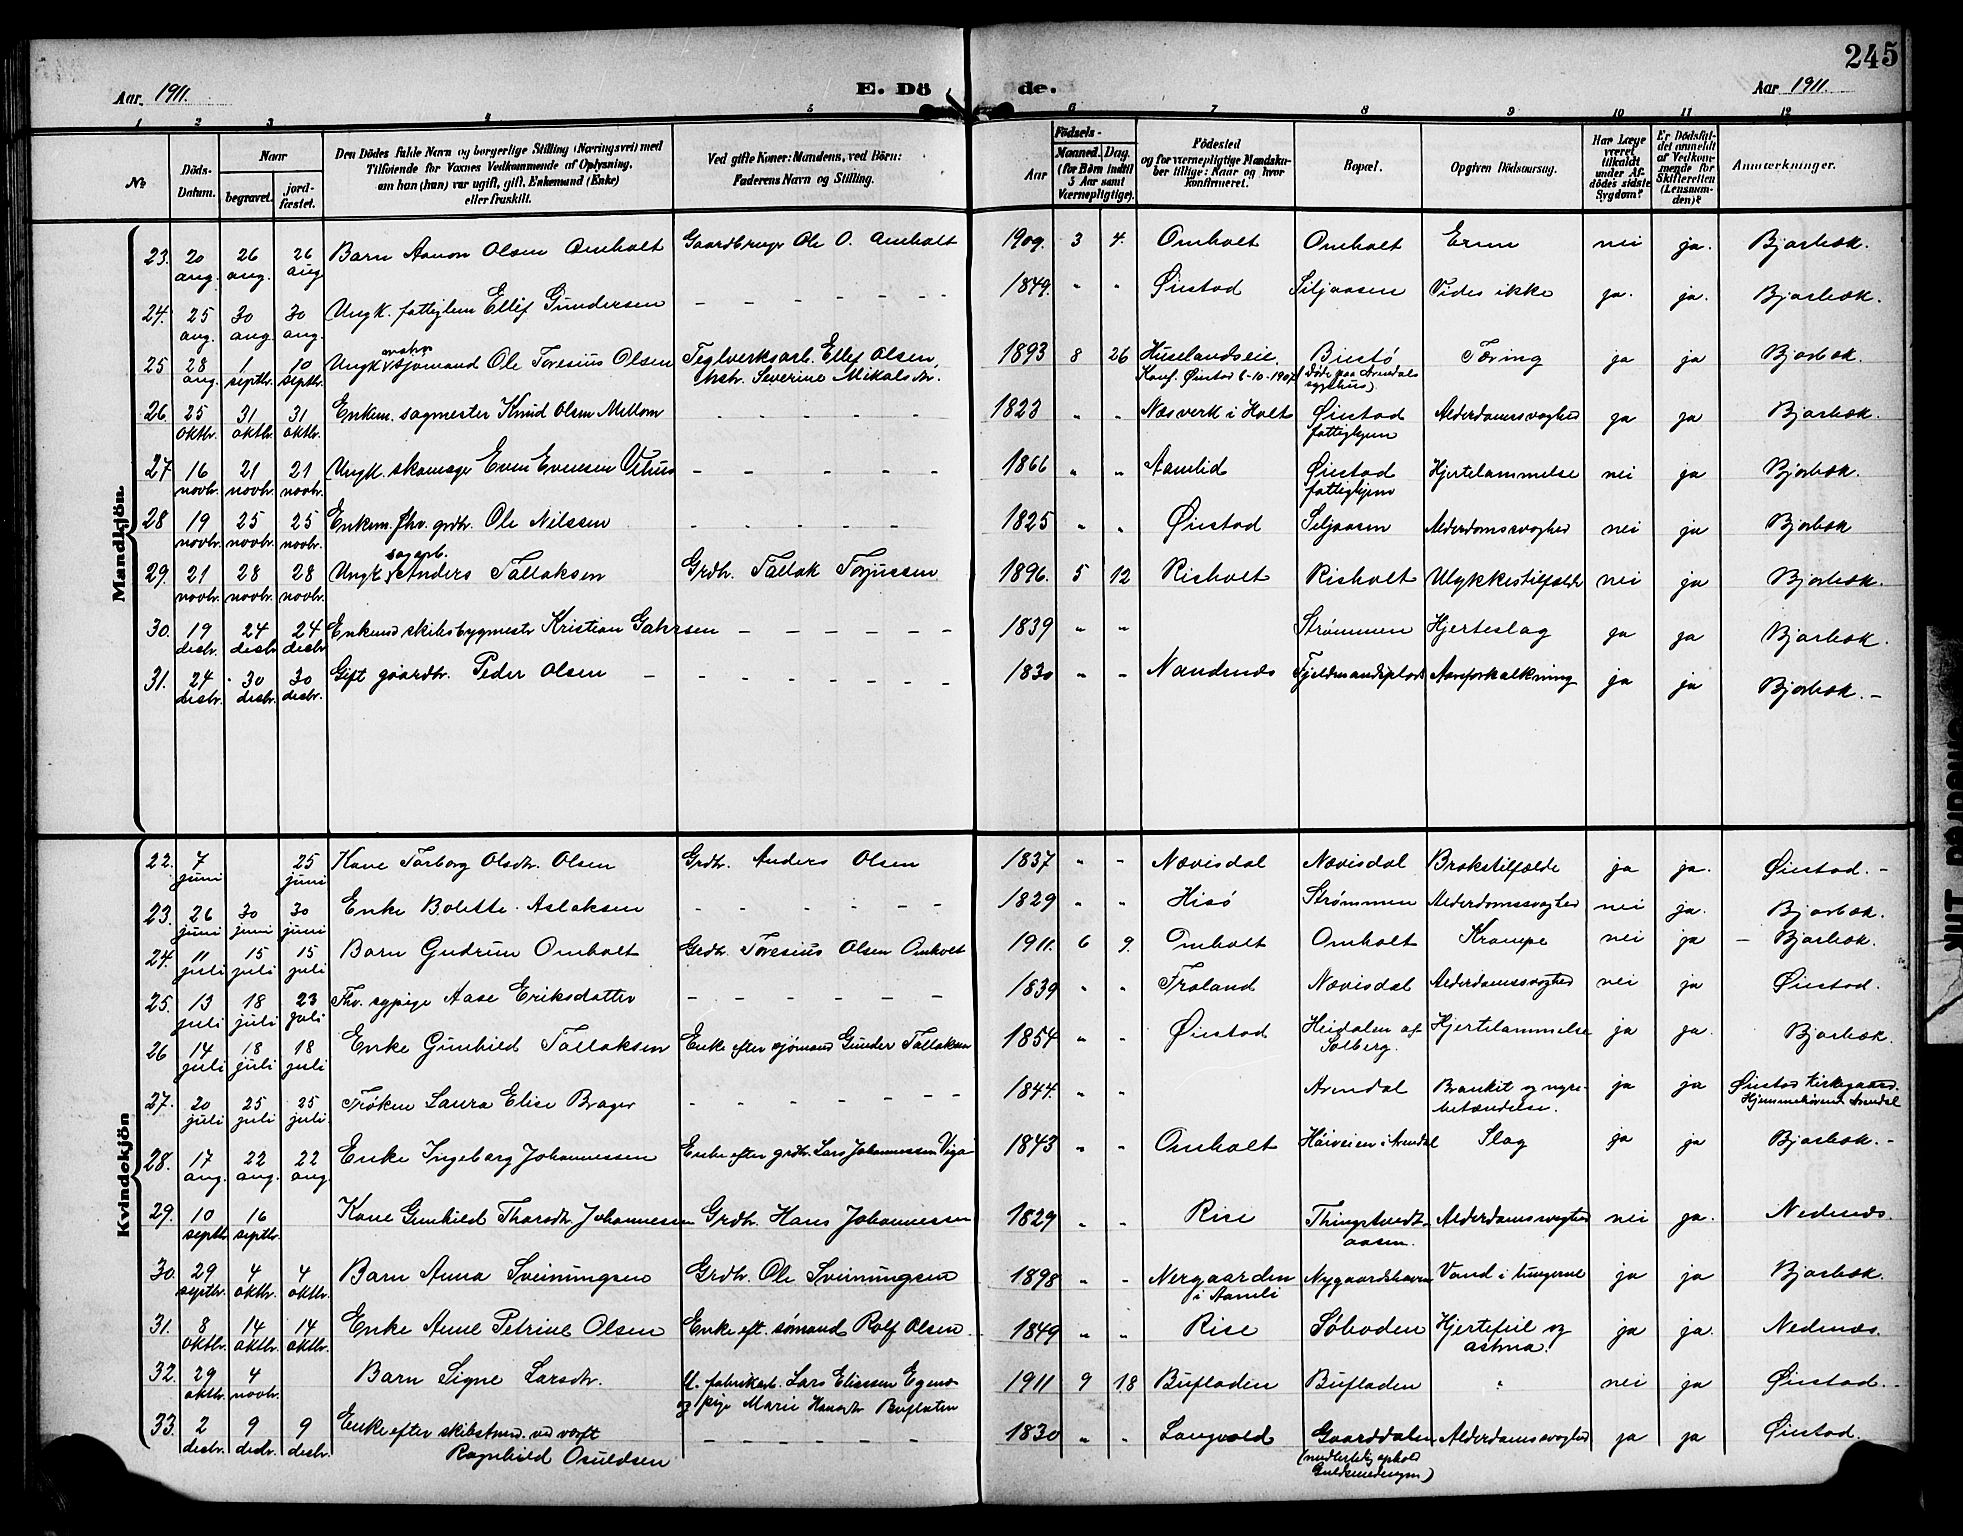 245
Aar 1911. E. Dö de. Aar 1911.
1 2 3 4 5 6 7 8 9 10 11 12
No
Döds-Datum.
Naar
begravet.
jord-fæstet.
Den Dödes fulde Navn og borgerlige Stilling (Næringsvei) med
Tilföiende for Voxnes Vedkommende af Oplysning,
om han (hun) var ugift, gift, Enkemand (Enke)
eller fraskilt.
Ved gifte Koner: Mandens, ved Börn:
Faderens Navn og Stilling.
Födsels-
Aar
Maaned. Dag.
(for Börn indtil
5 Aar samt
Værnepligtige).
Födested
og for værnepligtige Mandska-
ber tillige: Naar og hvor
konfirmeret.
Bopæl.
Opgiven Dödsaarsag.
Har Læge
været
tilkaldt
under Af-
dödes sidste
Sygdom?
Er Dödsfal-
det anmeldt
af Vedkom-
mende for
Skifteretten
(Lensman-
den)?
Anmærkninger.
Mandkjön.
23. 20 aug. 26 aug. 26 aug Barn Aanon Olsen Omholt Gaardbruger Ole O. Omholt 1909. 3 4. Omholt Omholt nei ja. Bjorbæk.
24. 25 aug. 30 aug. 30 aug. Ungk. fattiglem Ellef Gundersen – – – – – – 1849. " " Øiestad Siljaasen Vides ikke ja. ja. Bjorbæk.
25 28 aug. 1 septbr. 10 septbr. Ungk. sjømand Ole Toresius Olsen Teglverksarb. Ellef Olsen, hstr. Severine Mikalsdtr. 1893 8 26 Huselandseie Konf. Øiestad 6-10-1907 Biestø (Døde paa Arendals sygehus) Tæring ja ja Bjorbæk.
26 25 oktbr. 31 oktbr. 31 oktbr. Enkem. sagmester Knud Olsen Mellom – – – – – 1823 " " Næsverk i Holt Øiestad fattighjem Alderdomssvaghed ja ja Bjorbæk.
27 16 novbr. 21 novbr. 21 novbr. Ungk. skomager Even Evensen – – – – – 1866 " " Aamlid Øiestad fattighjem Hjertelammelse nei ja Bjorbæk.
28 19 novbr. 25 novbr. 25 novbr. Enkem. fhv. grdbr. Ole Nilssen – – – – – 1825 " " Øiestad Seljaasen Alderdomssvaghed nei ja Bjorbæk
29. 21 novbr. 28 novbr. 28 novbr. Ungk. sagarb. Anders Tallaksen Grdbr. Tallak Torjussen 1896. 5 12 Risholt Risholt Ulykkestilfælde nei ja Bjorbæk.
30. 19 desbr. 24 desbr. 24 desbr. Enkemd skibsbygmester Kristian Gahrsen – – – – – – 1839 " " Strømmen Hjerteslag ja ja Bjorbæk.
31. 24 desbr. 30 desbr. 30 desbr. Gift gaardbr. Peder Olsen – – – – – – – 1830 " " Nandenæs Fjeldmandsplads Aareforkalkning ja ja Bjorbæk. –
Kvindekjön
22. 7 juni 25 juni Kone Torborg Olsdtr. Olsen Grdbr. Anders Olsen 1837 " " Nævisdal Nævisdal Brokstilfælde ja ja. Øiestad. –
23. 26 juni 30 juni 30 juni Enke Bolette Aslaksen – – – – – – 1829 " " Hisø Strømmen Alderdomssvaghed nei ja. Bjorbæk.
24. 11 juli 15 juli 15 juli Barn Gudrun Omholt Grdbr. Toresius Olsen Omholt 1911. 6 9. Omholt Omholt Krampe nei ja – Bjorbæk.
25. 13 juli 18 juli 23 juli Fhv. sypige Aase Eriksdatter – – – – – – 1839 " " Froland Nævisdal Alderdomssvaghed nei ja Øiestad.
26 14 juli 18 juli 18 juli Enke Gunhild Tallaksen Enke efter sjømand Gunder Tallaksen 1854 " " Øiestad Heidalen af Solberg. Hjertelammelse ja ja. Bjorbæk.
27. 20 juli 25 juli 25 juli Frøken Laura Elise Brager – – – – – – – 1844. " " Arendal Bronkit og nyre-betændelse. ja ja Øiestad kirkegaard. Hjemmehørende Arendal
28. 17 aug. 22 aug. 22 aug. Enke Ingeborg Johannessen Enke efter grdbr. Lars Johannessen 1843 " " Omholt Høiveien i Arendal Slag ja ja Bjorbæk. –
29. 10 septbr. 16 septbr. Kone Gunhild Thorsdtr. Johannessen Grdbr. Hans Johannessen 1829 " " Rise Thingstvedt-aasen. Alderdomssvaghed nei ja. Nedenæs.
30. 29 septbr. 4 oktbr. 4 oktbr. Barn Anna Sveinungsen Grdbr. Ole Sveinungsen 1898 " " Nergaarden i Aamli Nygaardshaven Vand i lungerne ja ja Bjorbæk.
31. 8 oktbr. 14 oktbr. 14 oktbr. Enke Anne Petrine Olsen Enke eft. sømand Rolf Olsen 1849 " " Rise Søboden Hjertefeil og astma. ja ja. Nedenæs.
32. 29 oktbr. 4 novbr. Barn Signe Larsdtr. U. fabrikarb. Lars Eliessen og pige Marie 1911 9 18 Bufladen Bufladen " nei ja Øiestad. –
33. 2 desbr. 9 desbr. 9 desbr. Enke efter skibstmd. ved værft Ragnhild Osuldsen – – – – – – 1830 " " Langvold Gaarddalen Alderdomssvaghed ja ja Øiestad.